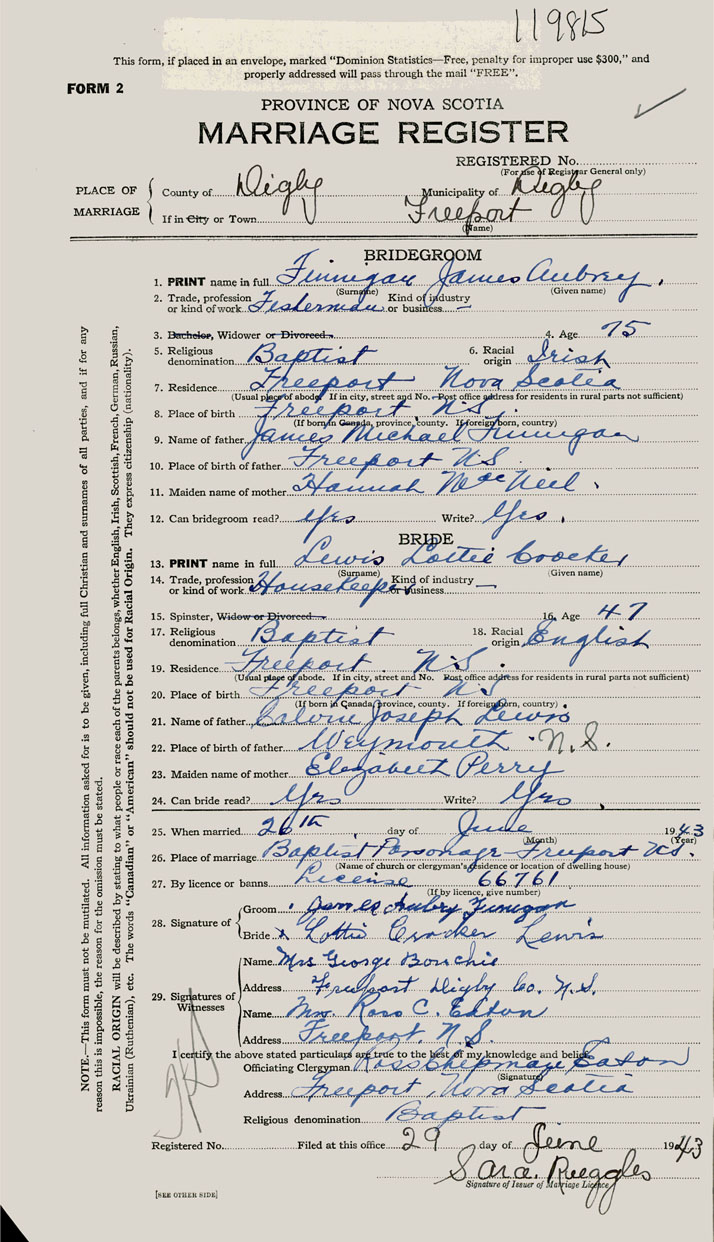 119815
This form, if placed in an envelope, marked "Dominion Statistics—Free, penalty for improper use $300," and
properly addressed will pass through the mail "FREE".
FORM 2
PROVINCE OF NOVA SCOTIA
MARRIAGE REGISTER
REGISTERED No.
(For use of Registrar General only)
PLACE OF MARRIAGE
County of Digby Municipality of Digby
If in City or Town Freeport
(Name)
BRIDEGROOM
1. PRINT name in full Finnigan James Aubrey
(Surname) (Given name)
2. Trade, profession or kind of work Fisherman Kind of industry or business —
3. Bachelor, Widower or Divorced 4. Age 75
5. Religious denomination Baptist 6. Racial origin Irish
7. Residence Freeport Nova Scotia
(Usual place of abode. If in city, street and No. Post office address for residents in rural parts not sufficient)
8. Place of birth Freeport N.S.
(If born in Canada, province, county. If foreign born, country)
9. Name of father James Michael Finnigan
10. Place of birth of father Freeport N.S.
11. Maiden name of mother Hannah MacNeil
12. Can bridegroom read? Yes Write? Yes
BRIDE
13. PRINT name in full Lewis Lottie Croocker
(Surname) (Given name)
14. Trade, profession or kind of work Housekeeper Kind of industry or business —
15. Spinster, Widow or Divorced 16. Age 47
17. Religious denomination Baptist 18. Racial origin English
19. Residence Freeport N.S.
(Usual place of abode. If in city, street and No. Post office address for residents in rural parts not sufficient)
20. Place of birth Freeport N.S.
(If born in Canada, province, county. If foreign born, country)
21. Name of father Calvin Joseph Lewis
22. Place of birth of father Weymouth N.S.
23. Maiden name of mother Elizabeth Perry
24. Can bride read? Yes Write? Yes
25. When married 26th day of June 1943
(Month) (Year)
26. Place of marriage Baptist Parsonage Freeport N.S.
(Name of church or clergyman's residence or location of dwelling house)
27. By licence or banns License 66761
(If by licence, give number)
28. Signature of
Groom James Aubry Finigan
Bride x Lottie Crocker Lewis
29. Signatures of Witnesses
Name Mrs George Bouchie
Address Freeport Digby Co. N.S.
Name Mrs. Ross C. Eaton
Address Freeport, N.S.
I certify the above stated particulars are true to the best of my knowledge and belief.
Officiating Clergyman Ross Chipman Eaton
(Signature)
Address Freeport, Nova Scotia
Religious denomination Baptist
Registered No. Filed at this office 29 day of June 1943
Sara. Ruggles
Signature of Issuer of Marriage Licence
[SEE OTHER SIDE]
NOTE.—This form must not be mutilated. All information asked for is to be given, including full Christian and surnames of all parties, and if for any
reason this is impossible, the reason for the omission must be stated.
RACIAL ORIGIN will be described by stating to what people or race each of the parents belongs, whether English, Irish, Scottish, French, German, Russian,
Ukrainian (Ruthenian), etc. The words "Canadian" or "American" should not be used for Racial Origin. They express citizenship (nationality).